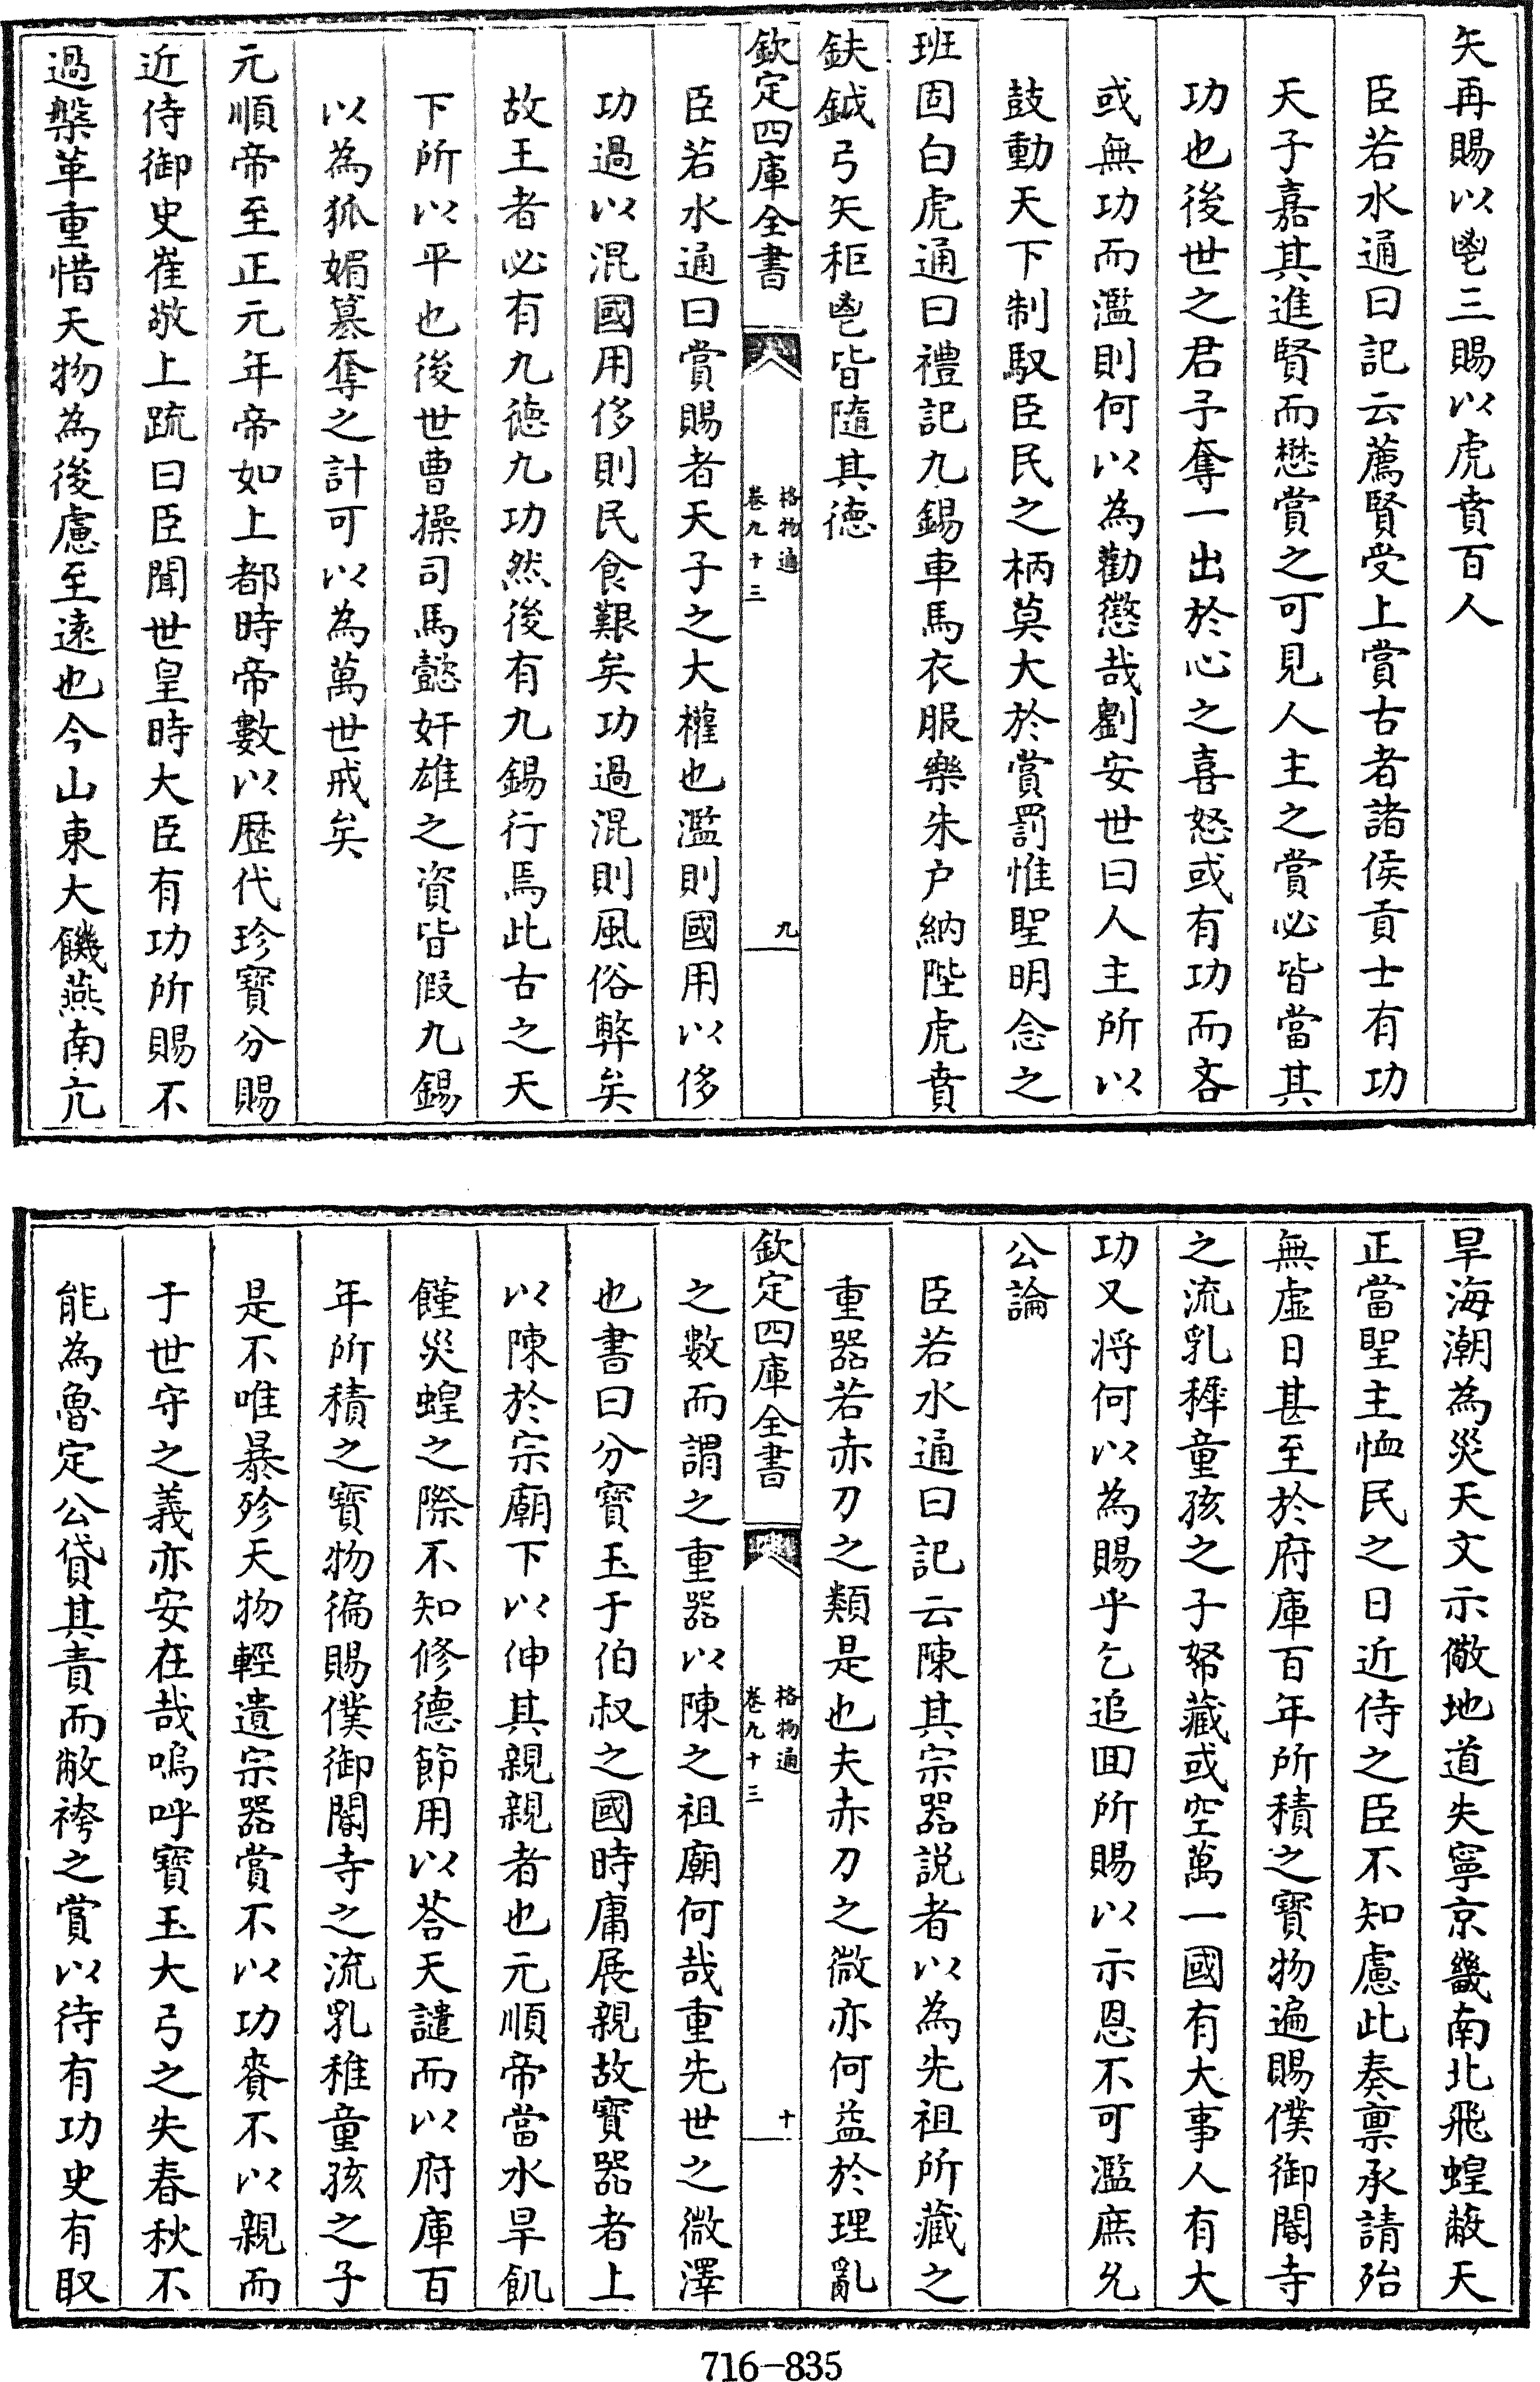 矢再賜以鬯三賜以虎賁百人
臣若水通曰記云薦賢受上賞古者諸侯貢士有功
天子嘉其進賢而懋賞之可見人主之賞必皆當其
功也後世之君子奪一出於心之喜怒或有功而吝
或無功而濫則何以為勸懲哉劉安世曰人主所以
鼓動天下制馭臣民之柄莫大於賞罰惟聖明念之
班固白虎通曰禮記九錫車馬衣服樂朱户納陛虎賁
鈇鉞弓矢秬鬯皆隨其徳
欽定四庫全書
格物通
卷九十三
九
臣若水通曰賞賜者天子之大權也濫則國用以侈
功過以混國用侈則民食艱矣功過混則風俗弊矣
故王者必有九徳九功然後有九錫行焉此古之天
下所以平也後世曹操司馬懿奸雄之資皆假九錫
以為狐媚簒奪之計可以為萬世戒矣
元順帝至正元年帝如上都時帝數以歴代珍寶分賜
近侍御史崔敬上疏曰臣聞世皇時大臣有功所賜不
過槃革重惜天物為後慮至遠也今山東大饑燕南亢
旱海潮為災天文示儆地道失寧京畿南北飛蝗蔽天
正當聖主恤民之日近侍之臣不知慮此奏禀承請殆
無虚日甚至於府庫百年所積之寶物遍賜僕御閽寺
之流乳稺童孩之子帑藏或空萬一國有大事人有大
功又将何以為賜乎乞追囬所賜以示恩不可濫庶允
公論
臣若水通曰記云陳其宗器説者以為先祖所藏之
重器若赤刀之類是也夫赤刀之微亦何益於理亂
欽定四庫全書
格物通
卷九十三
十
之數而謂之重器以陳之祖廟何哉重先世之微澤
也書曰分寶玉于伯叔之國時庸展親故寶器者上
以陳於宗廟下以伸其親親者也元順帝當水旱飢
饉災蝗之際不知修德節用以荅天譴而以府庫百
年所積之寶物徧賜僕御閽寺之流乳稚童孩之子
是不唯暴殄天物輕遺宗器賞不以功賚不以親而
于世守之義亦安在哉嗚呼寶玉大弓之失春秋不
能為魯定公貸其責而敝袴之賞以待有功史有取
716-835